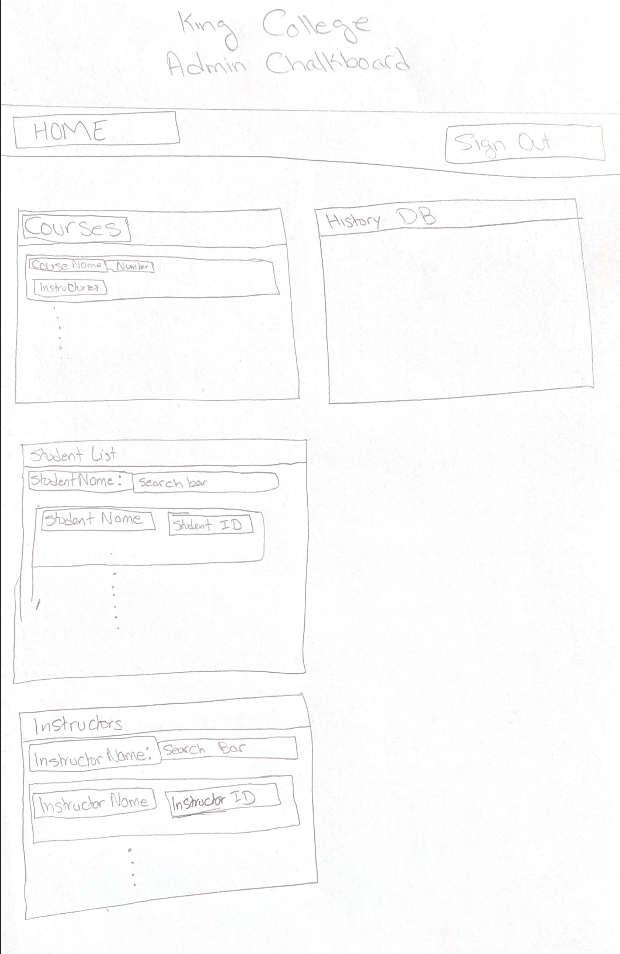 King College
Admin Chalkboard
HOME
Sign Out
Courses
Couse Name Number
Instructures
History DB
Student List
Student Name: Search bar
Student Name Student ID
Instructors
Instructor Name: Search Bar
Instructor Name Instructor ID